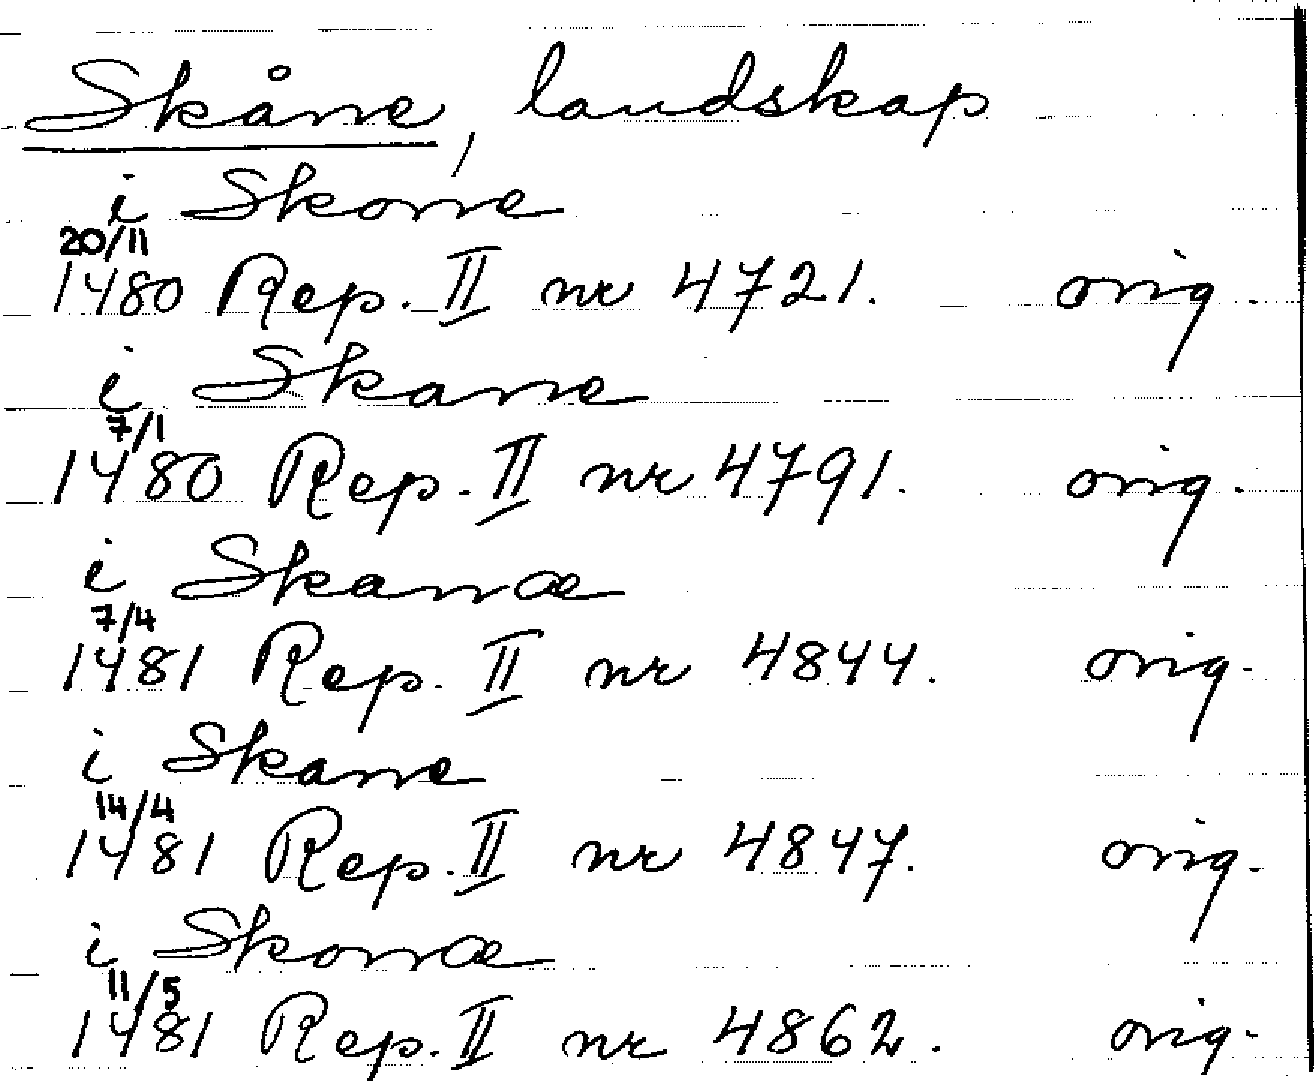 Skåne, landskap
i Skone
20/11
1480 Rep. II nr 4721. orig.
i Skane
7/1
1480 Rep. II nr 4791. orig.
i Skanæ
7/4
1481 Rep. II nr 4844. orig.
i Skane
14/4
1481 Rep. II nr 4847. orig.
i Skonæ
11/5
1481 Rep. II nr 4862. orig.